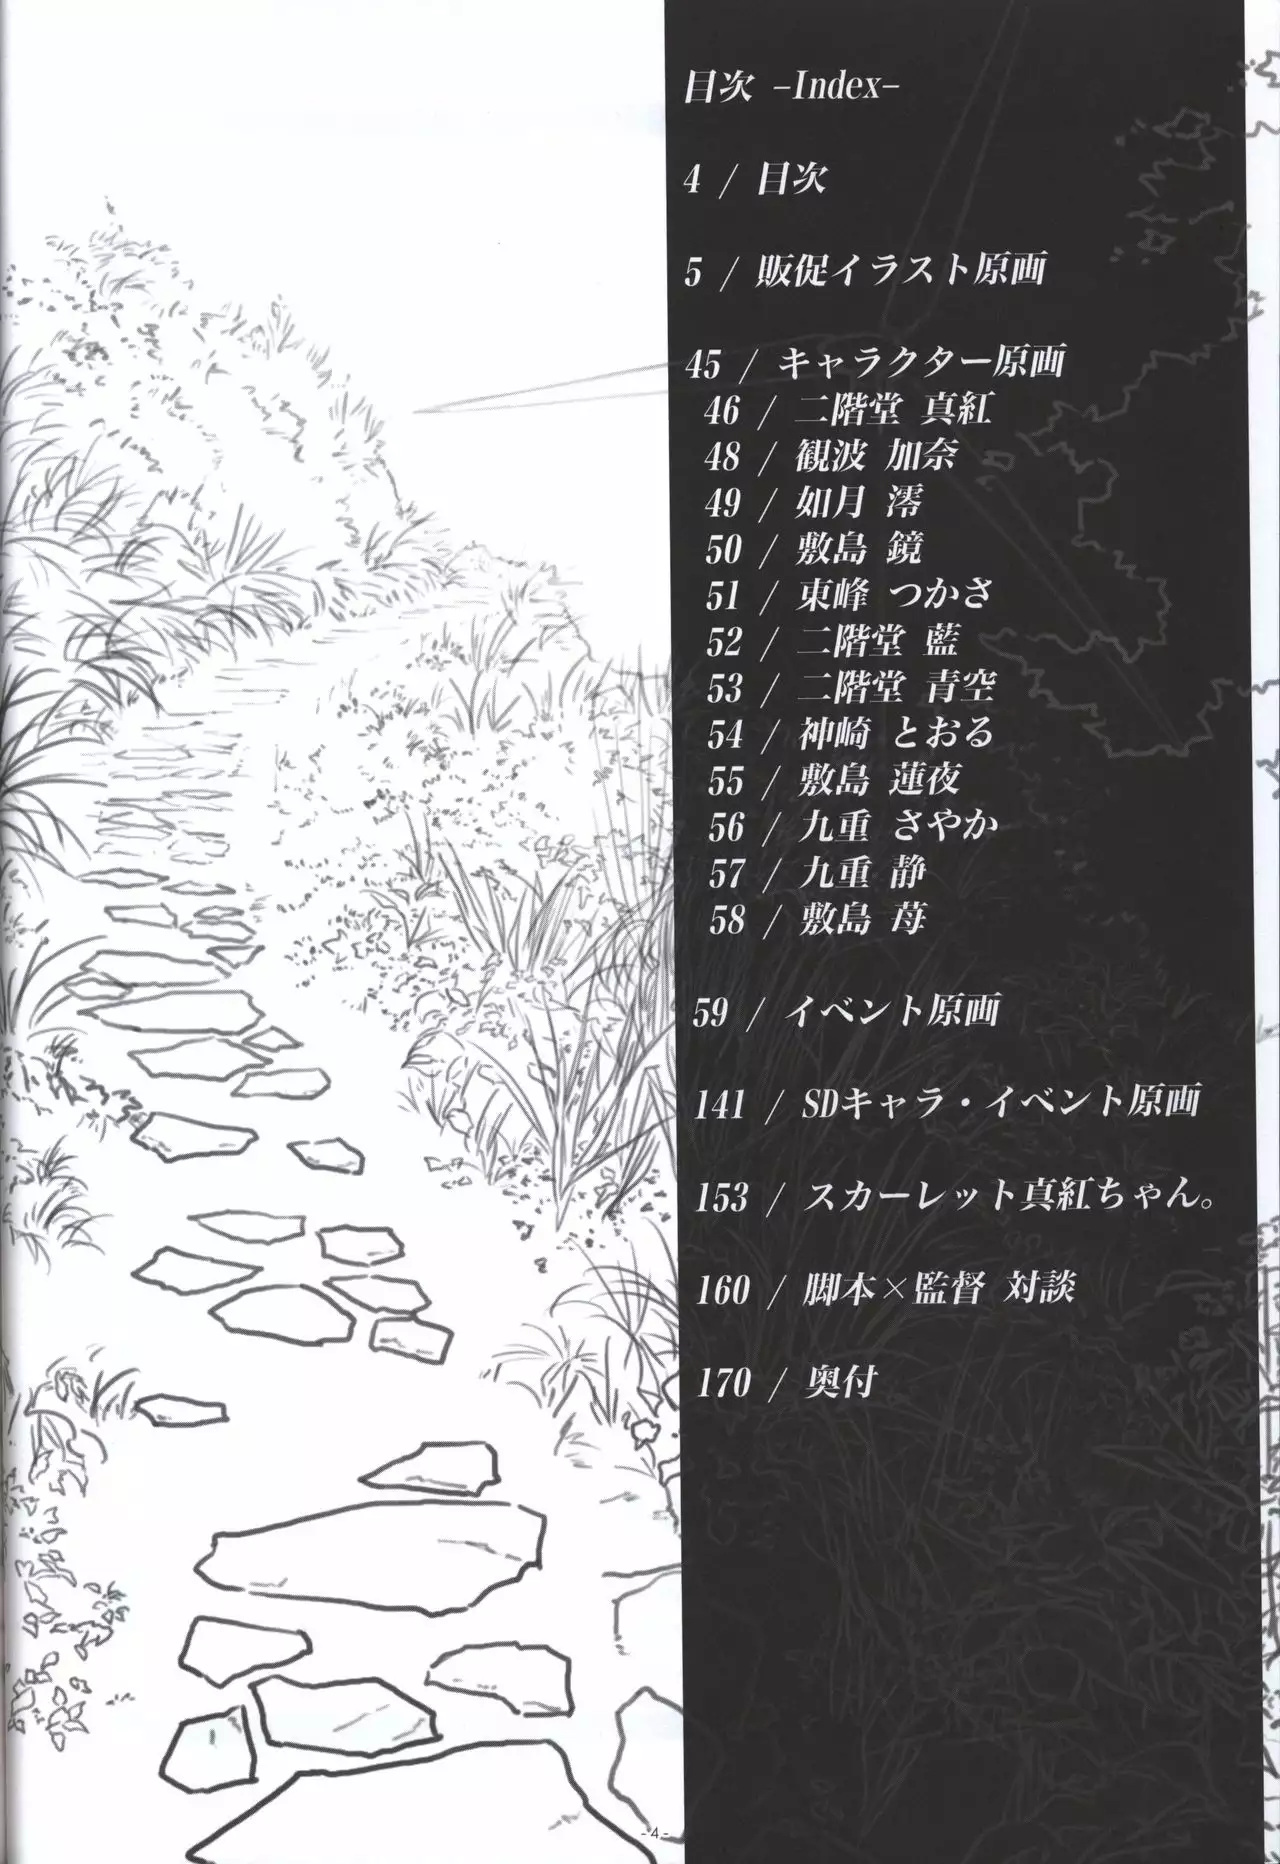 目次 –Index–
4 / 目次
5 / 販促イラスト原画
45 / キャラクター原画
46 / 二階堂 真紅
48 / 観波 加奈
49 / 如月 澪
50 / 敷島 鏡
51 / 東峰 つかさ
52 / 二階堂 藍
53 / 二階堂 青空
54 / 神崎 とおる
55 / 敷島 蓮夜
56 / 九重 さやか
57 / 九重 静
58 / 敷島 苺
59 / イベント原画
141 / SDキャラ・イベント原画
153 / スカーレット真紅ちゃん。
160 / 脚本×監督 対談
170 / 奥付
-4-